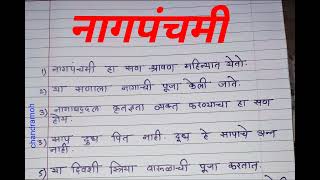 नागपंचमी
1) नागपंचमी हा सण श्रावण महिन्यात येतो.
2) या सणाला नागाची पूजा केली जाते.
3) नागाबद्दल कृतज्ञता व्यक्त करण्याचा हा सण
होय.
3) साप दुध पित नाही. दूध हे सापाचे अन्न
नाही.
5) या दिवशी स्त्रिया वारूळाची पूजा करतात.
chandramoh